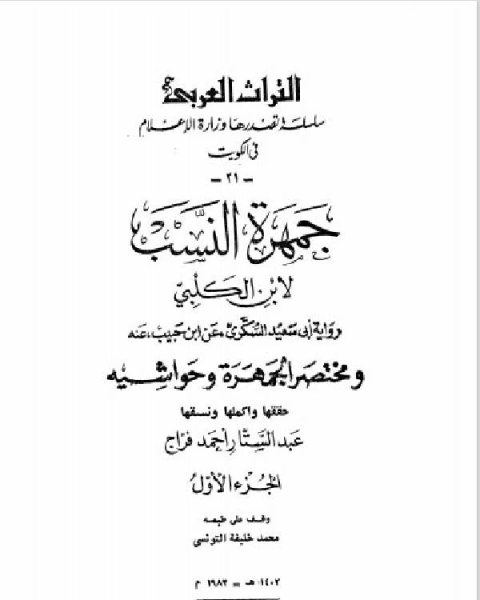 التراث العربي
سلسلة تصدرها وزارة الإعلام
في الكويت
- ٢١ -
جمهرة النسب
لابن الكلبي
رواية أبي سعيد السكري، عن ابن حبيب، عنه
ومختصر الجمهرة وحواشيه
حققها واكملها ونسقها
عبد الستار أحمد فراج
الجزء الأول
وقف على طبعه
محمد خليفة التونسي
١٤٠٣ هـ = ١٩٨٣ م